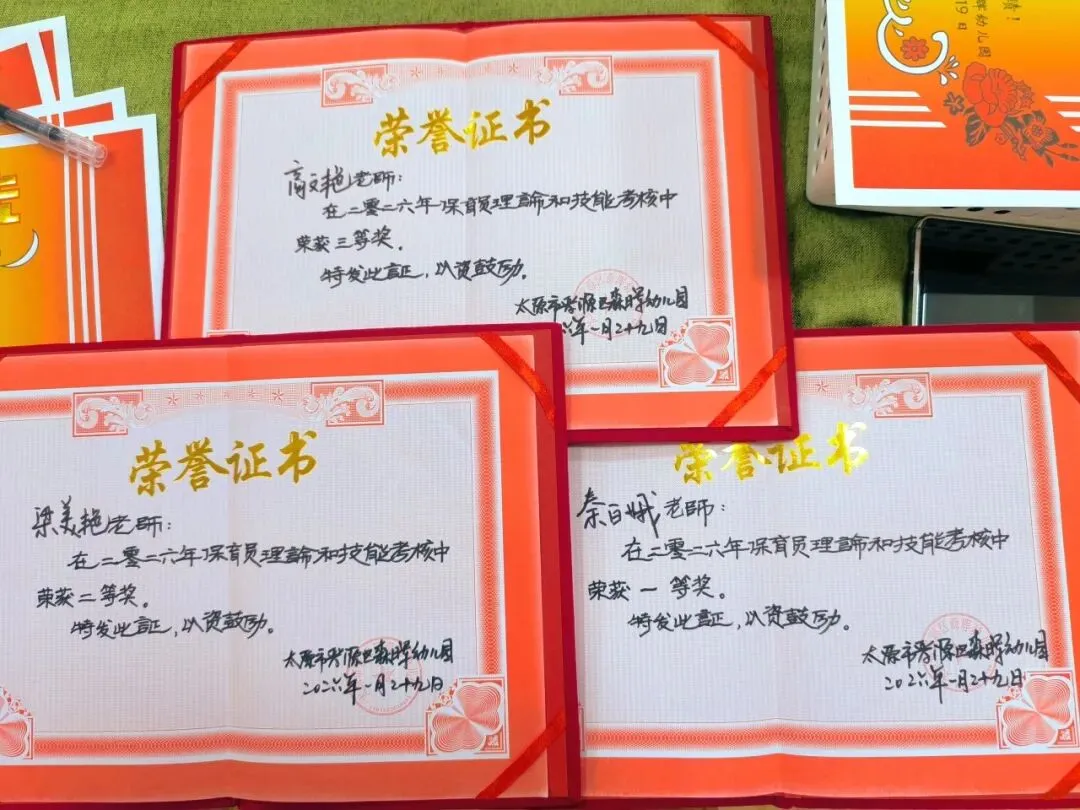 荣誉证书
高文艳老师:
在二零二六年保育员理論和技能考核中
荣获三等奖。
特发此証,以资鼓励。
太原市晋源区森晖幼儿园
二六年一月二十九日
荣誉证书
梁美艳老师:
在二零二六年保育员理論和技能考核中
荣获二等奖。
特发此証,以资鼓励。
太原市晋源区森晖幼儿园
二〇二六年一月二十九日
荣誉证书
老师:
在二零二六年保育员理論和技能考核中
荣获一等奖。
特发此証,以资鼓励。
太原市晋源区森晖幼儿园
二〇二六年一月二十九日
晖幼儿园
19日